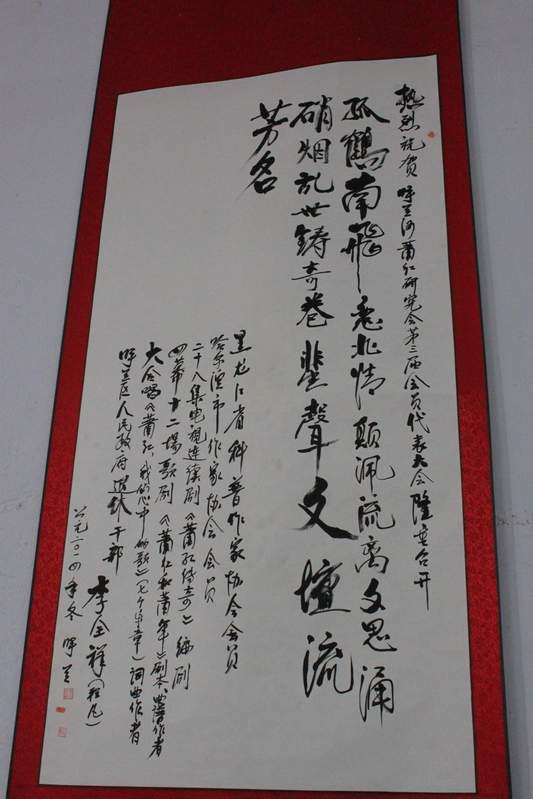 热烈祝贺 呼兰河萧红研究会第三届会员代表大会隆重召开
孤鹤南飞恋北情 颠沛流离文思涌
硝烟乱世铸奇卷 蜚聲文壇流
芳名
黑龙江省科普作家协会会员
哈尔滨市作家协会会员
二十八集电视连续剧《萧红传奇》编剧
四幕十二场歌剧《萧红和萧军》剧本、曲谱作者
大合唱《萧红，我的心中的歌》（七个乐章）词曲作者
呼兰区人民政府退休干部
李全祥（程凡）
公元二〇一四年冬 呼兰